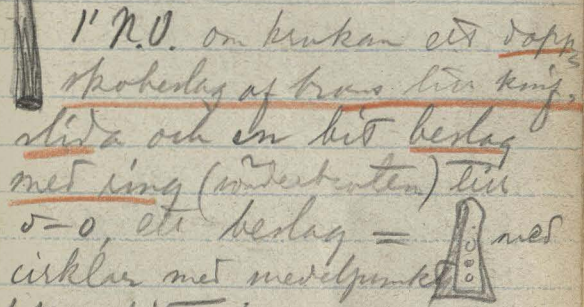 1' N.O. om krukan ett dopp-
skobeslag af brons till knif-
slida och en bit beslag
med ring (sönderbruten) till
d-o, ett beslag = med
cirklar med medelpunkt